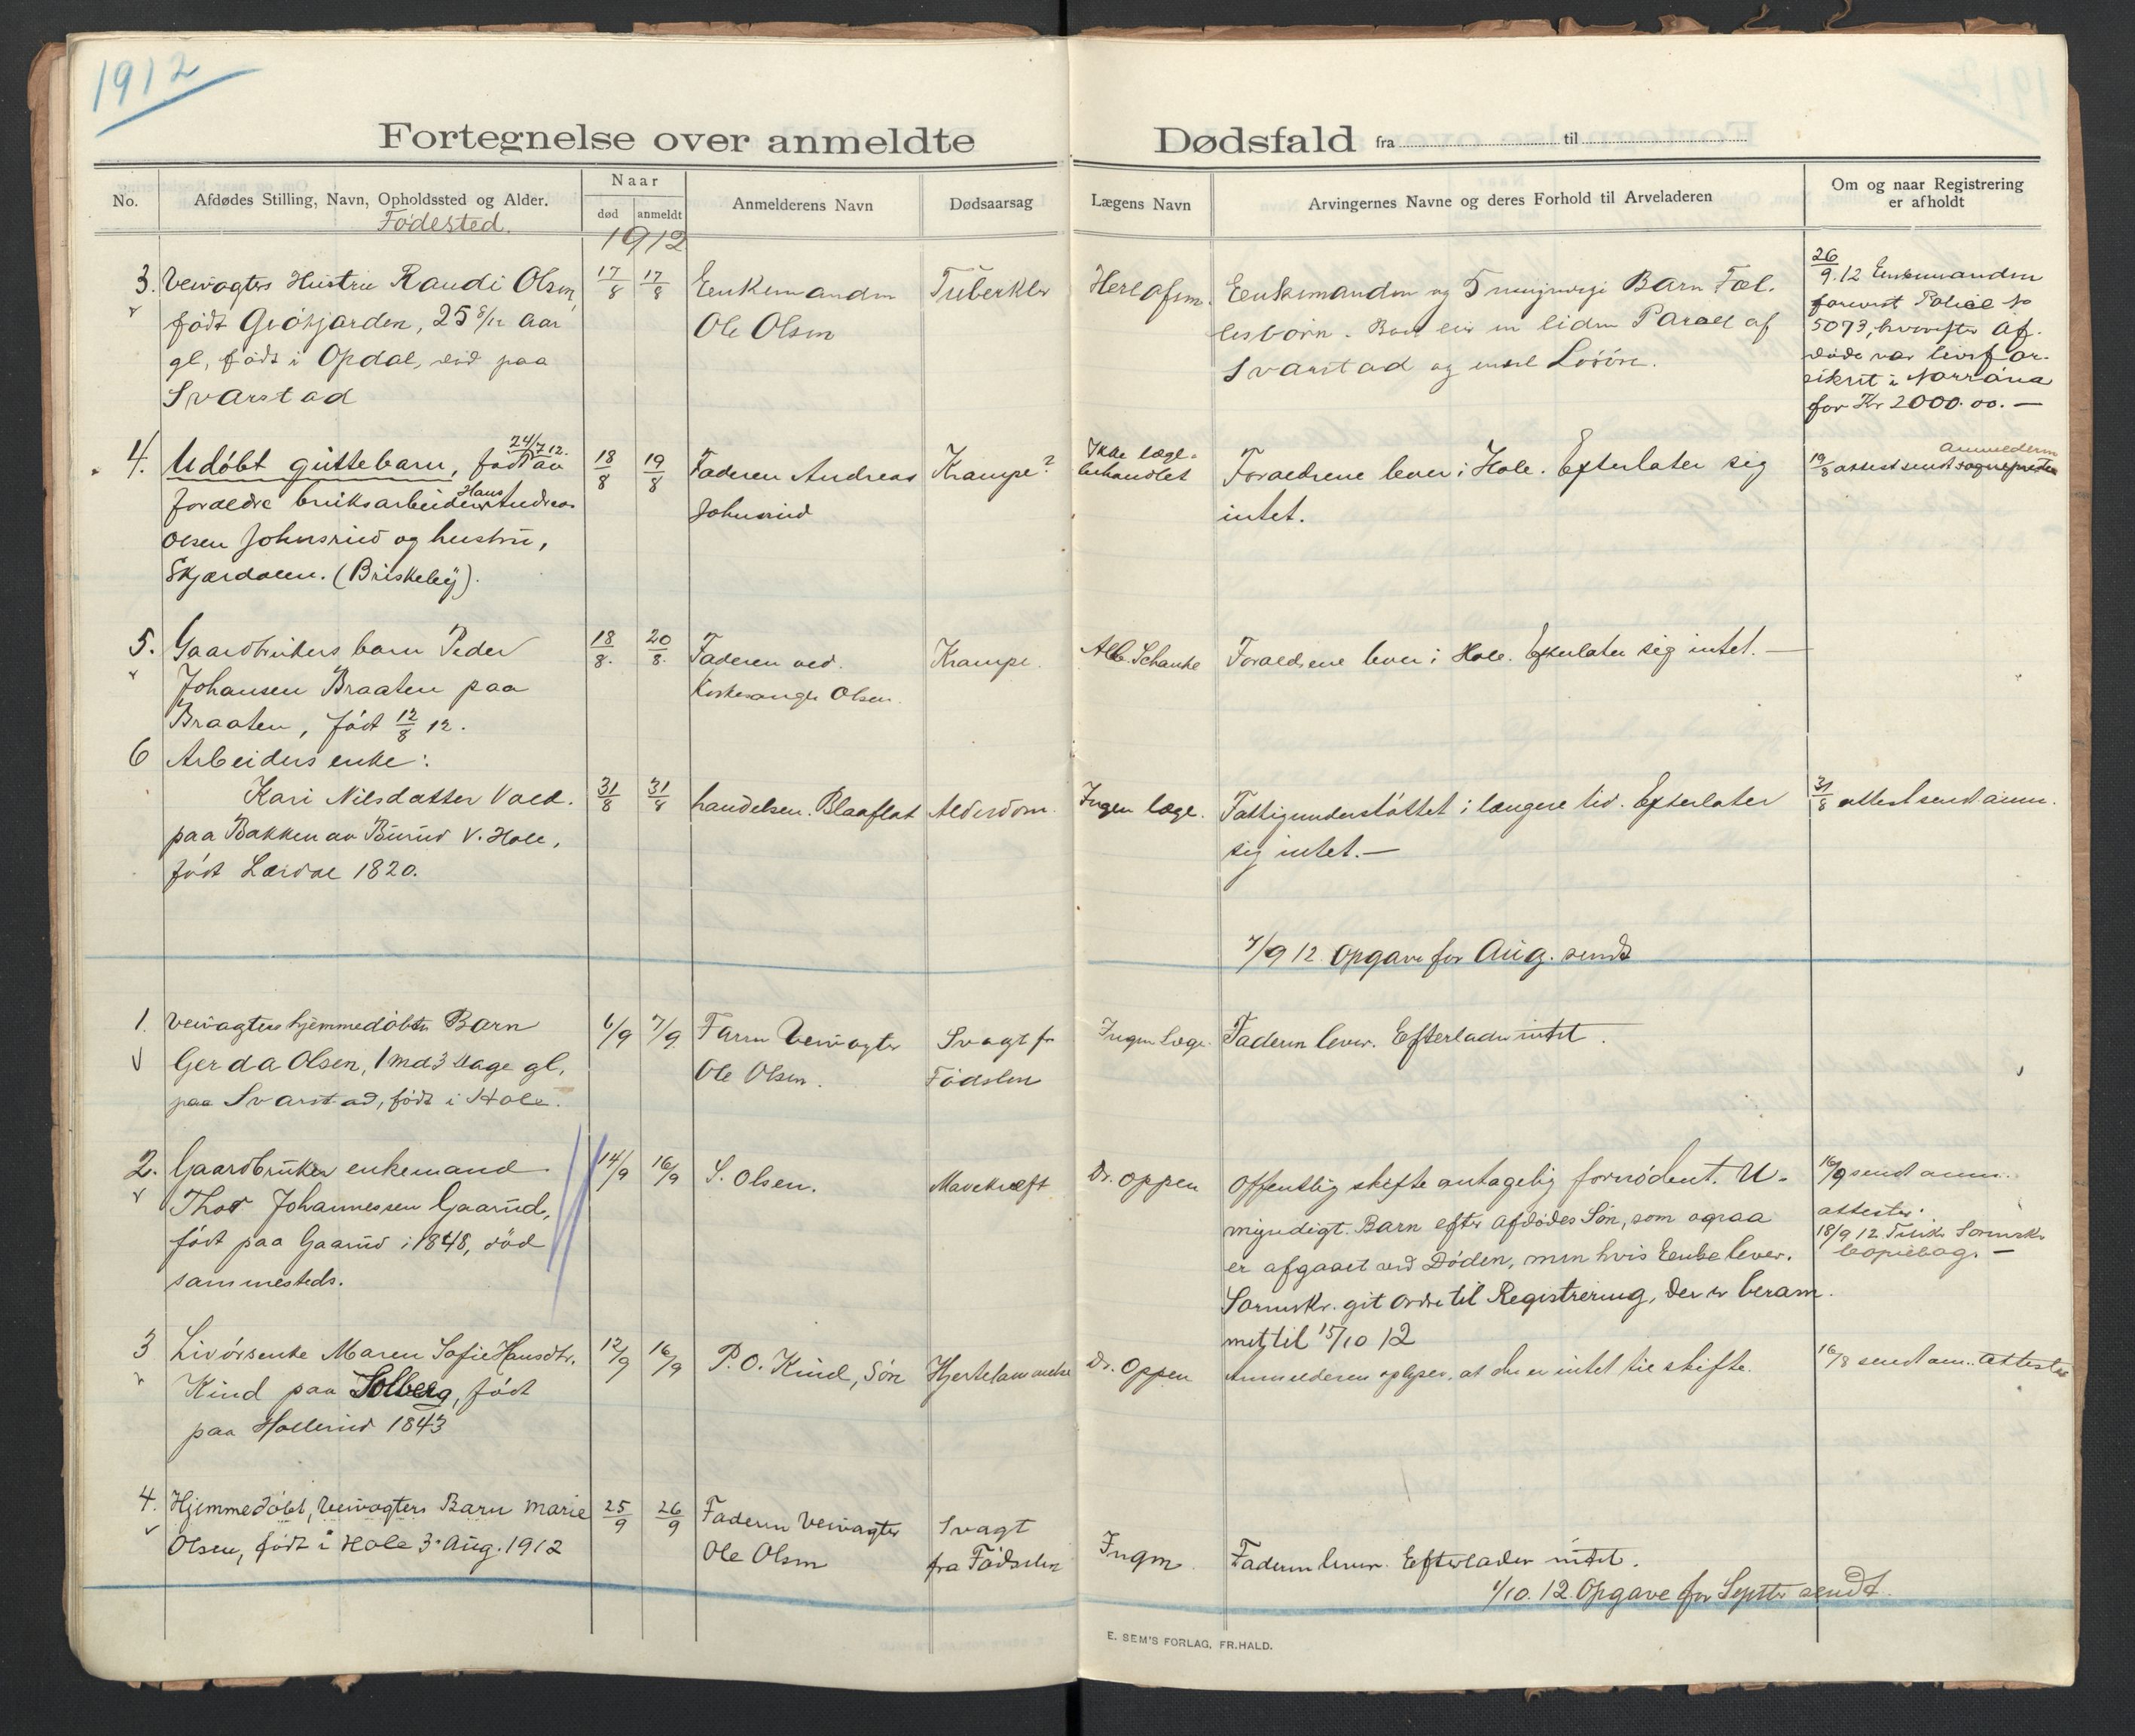 1912
Fortegnelse over anmeldte Dødsfald fra til
No.
Afdødes Stilling, Navn, Opholdssted og Alder.
Fødested.
Naar
død
anmeldt
1912
Anmelderens Navn
Dødsaarsag
Lægens Navn
Arvingernes Navne og deres Forhold til Arveladeren
Om og naar Registrering
er afholdt
3. Veivogters Hustru Randi Olsen,
født Gröhjorden, 25 8/12 Aar
gl, født i Opdal, död paa
Svarstad
17/8
17/8
Enkemanden
Ole Olsen
Tuberkler
Enkemanden og 5 umyndige Barn Fæl.
lesbörn. Boet eier en liden Parcel af
Svarstad og endel Lösöre.
26/9.12 Enkemanden
forevist Police No
5073, hvorefter Af.
døde var livsfor.
sikret i Norröna
for Kr 2000.00.—
4. Udöbt guttebarn, født 24/7 12. av
foraeldre bruksarbeider Hans Andreas
Olsen Johnsrud og hustru,
Skjærdalen. (Briskeby).
18/8
19/8
Faderen Andreas
Johnsrud
Krampe?
Ikke læge-
behandlet
Foraeldrene lever i Hole. Efterlater sig
intet.
19/8 attest sendt
anmelderen
5. Gaardbrukers barn Peder
Johansen Braaten paa
Braaten, født 12/8 12.
18/8.
20/8.
Faderen ved.
Kirkesanger Olsen.
Krampe.
Alb. Schanke
Foraeldrene lever i Hole. Efterlater sig intet.—
6 Arbeiders enke:
Kari Nilsdatter Vold.
paa Bakken av Burud V. Hole,
født Lærdal 1820.
31/8
31/8
handelsm. Blaaflat
Alderdom.
Ingen læge.
Fattigunderstöttet i længere tid. Efterlater
sig intet.—
31/8 attest sendt anm.
7/9 12. Opgave for Aug. sendt
1. Veivogters hjemmedöbte Barn
Gerda Olsen, 1 md 3 Dage gl.
paa Svarstad, født i Hole.
6/9
7/9
Faren Veivogter
Ole Olsen.
Svagt fr
Födslen
Ingen Læge.
Faderen lever. Efterlader intet.
2. Gaardbruker enkemand
Thor Johannessen Gaarud,
født paa Gaarud i 1848, död
sammesteds.
14/9
16/9
S. Olsen.
Mavekræft
Dr. Oppen
Offentlig skifte antagelig fornödent. U-
myndigt Barn efter Afdödes Sön, som ogsaa
er afgaaet ved Döden, men hvis Enke lever.
Sorenskr. git Ordre til Registrering, der er beram
met til 15/10 12
16/9 sendt anm.
attester.
18/9 12. Tilskr. Sorenskr.
Copiebog.—
3 Livörsenke Maren Sofie Hansdtr.
Kind paa Solberg, født
paa Hollerud 1843
12/9
16/9
P. O. Kind, Sön
Hjertelammelse
Dr. Oppen
Anmelderen oplyser, at der er intet til skifte.
16/8 sendt anm. attester
4. Hjemmedöbt, Veivogters Barn Marie
Olsen, født i Hole 3. Aug. 1912
25/9
26/9
Faderen Veivogter
Ole Olsen
Svagt
fra Födslen
Ingen
Faderen lever. Efterlader intet.
1/10. 12. Opgave for Septbr sendt.
E. SEM'S FORLAG, FR.HALD.